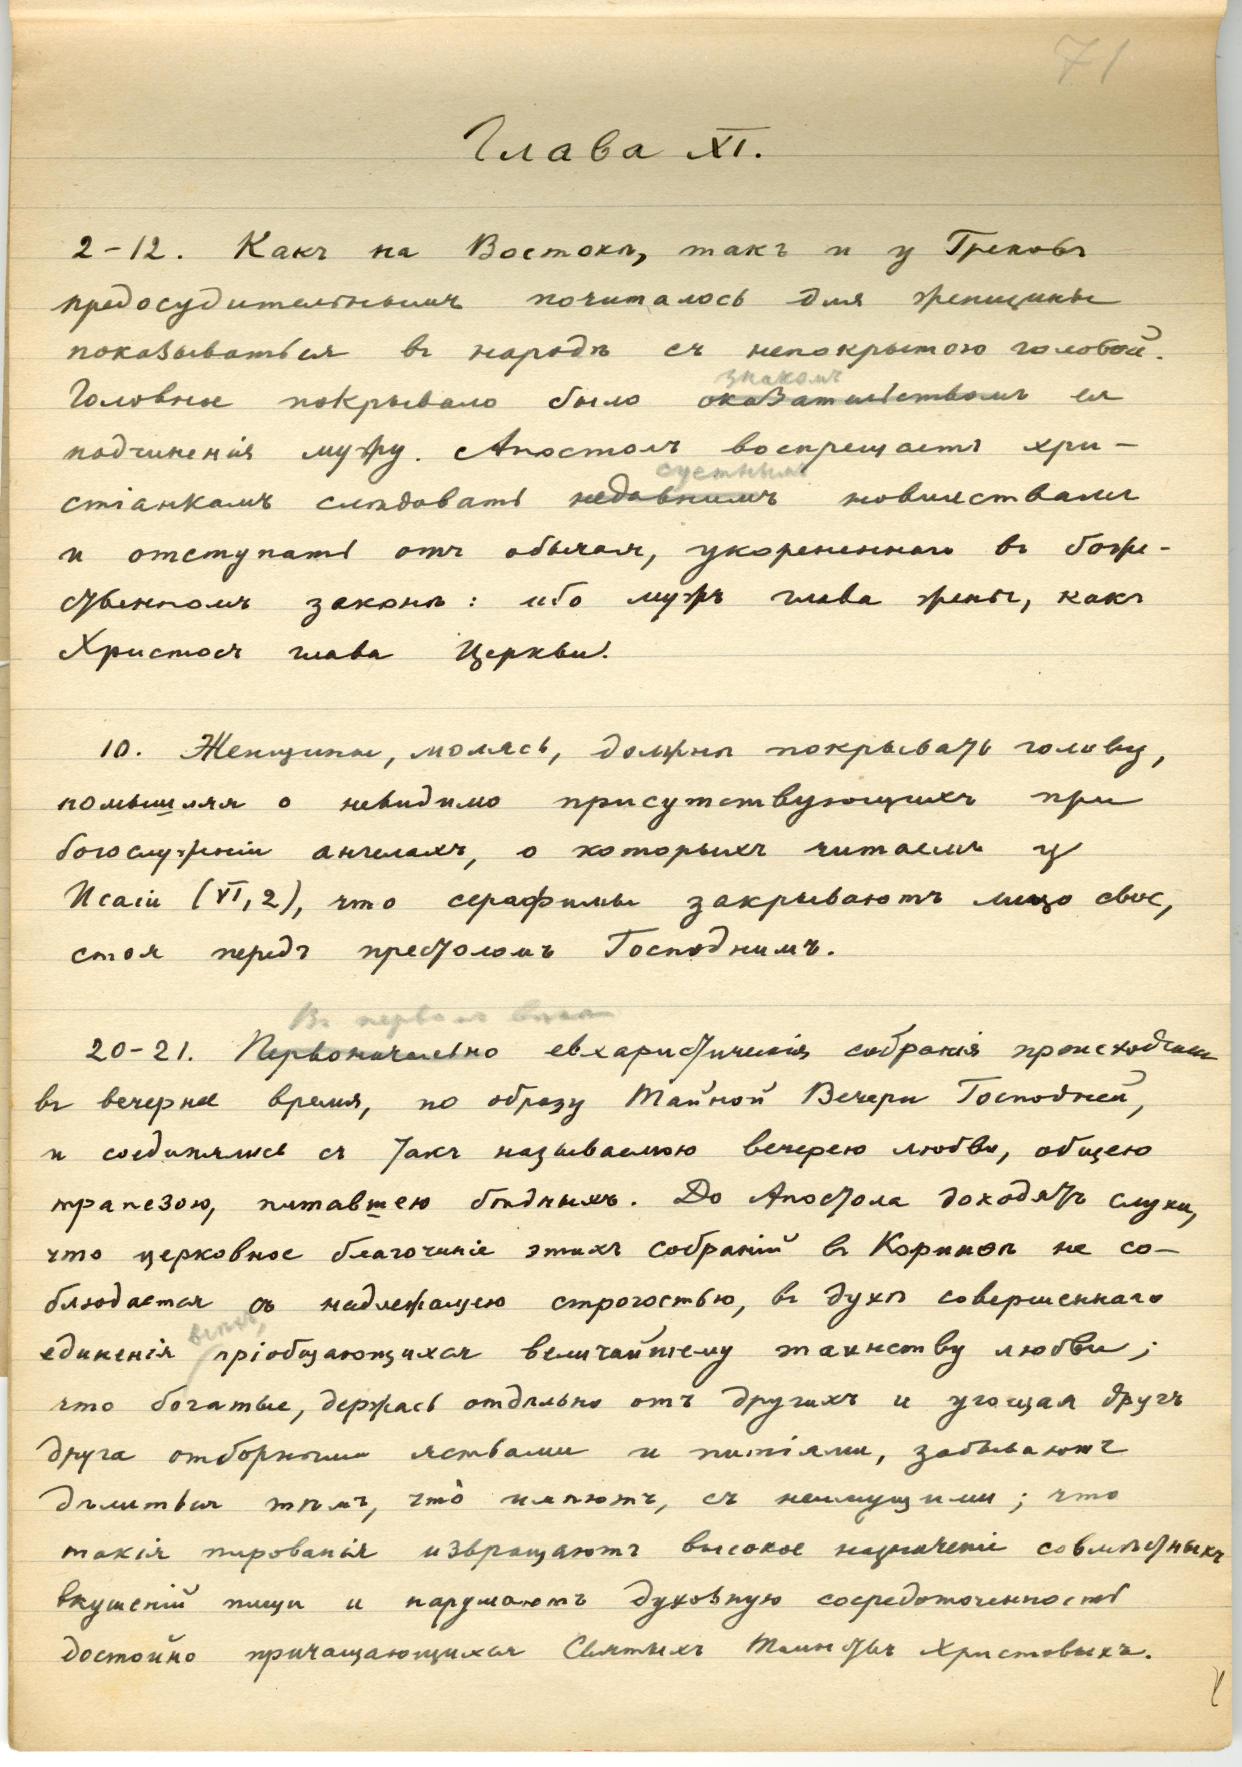 71
Глава XI.
2-12. Какъ на Востокѣ, такъ и у Грековъ
предосудительнымъ почиталось для женщины
показываться въ народѣ съ непокрытою головой.
знакомъ
Головное покрывало было оказательствомъ ея
подчиненія мужу. Апостолъ воспрещаетъ хри-
суетнымъ
стіанкамъ слѣдовать недавнимъ новшествамъ
и отступать отъ обычая, укорененнаго въ боже-
ственномъ законѣ: ибо мужъ глава жены, какъ
Христосъ глава Церкви.
10. Женщины, молясь, должны покрывать голову,
помышляя о невидимо присутствующихъ при
богослуженіи ангелахъ, о которыхъ читаемъ у
Исаіи (VI, 2), что серафимы закрываютъ лицо свое,
стоя передъ престоломъ Господнимъ.
Въ первомъ вѣкѣ
20-21. Первоначально евхаристическія собранія происходили
въ вечернее время, по образу Тайной Вечери Господней,
и соединялись съ такъ называемою вечерею любви, общею
трапезою, питавшею бѣдныхъ. До Апостола доходятъ слухи,
что церковное благочиніе этихъ собраній въ Коринѳѣ не со-
блюдается съ надлежащею строгостью, въ духѣ совершеннаго
всѣхъ,
единенія пріобщающихся величайшему таинству любви;
что богатые, держась отдѣльно отъ другихъ и угощая другъ
друга отборными яствами и питіями, забываютъ
дѣлиться тѣмъ, что̀ имѣютъ, съ неимущими; что
такія пированія извращаютъ высокое назначеніе совмѣстныхъ
вкушеній пищи и нарушаютъ духовную сосредоточенность
достойно причащающихся Святыхъ Таинствъ Христовыхъ.